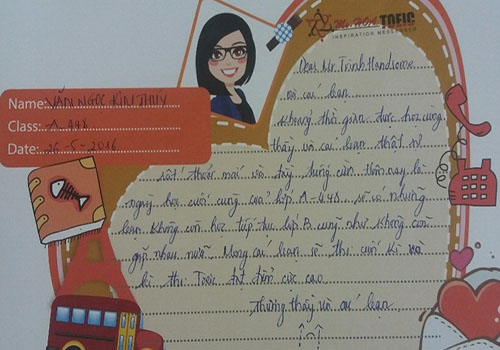 Ms HOA TOEIC
INSPIRATION MESSENGER
Name: VĂN NGỌC KIM THUY
Class: A 448
Date: 26-5-2016
Dear Mr Trinh Handsome
và các bạn
Khoảng thời gian được học cùng
thầy và các bạn thật sự
rất thoải mái và
hôm nay là
ngày học cuối cùng của lớp A 448. sẽ có những
bạn không còn học tiếp tục lớp B cũng như không còn
gặp nhau nữa. Mong các bạn sẽ thi cuối kì và
kì thi Toeic đạt điểm cực cao
Thương thầy và các bạn